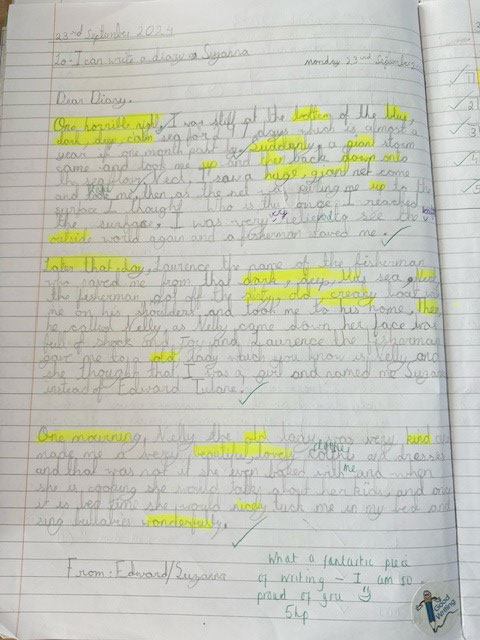 23rd September 2024
I can write a diary as Suzanna
monday 23rd September
Dear Diary,
One horrible night, I was still at the bottom of the blue,
dark, deep, calm sea for days which is almost a
year if one month past by. Suddenly, a giant storm
came and took me up and then back down onto
the sea floor. Next, I saw a huge, giant net come
and took me, then as the net was pulling me up to the
surface I thought who is this once I reached
the surface. I was very relieved to see the
outside world again and a fisherman saved me.
Later that day, Lawrence the name of the fisherman
who saved me from that dark, deep, blue sea. Next
the fisherman got off the old, creaky boat
me on his shoulder, and took me to his home, then
he called Nelly, as Nelly came down her face was
full of shock and Joy and Lawrence the fisherman
gave me to a old lady which you know is Nelly, and
she thought that I was a girl and named me
instead of Edward Tulane.
One mourning, Nelly the old lady was very kind
made me a very beautiful lovely clothes and dresses
and that was not it she even baked with me and when
she is she would talk about her kids, and once
it is bed time she would tuck me in my bed and
sing lullabies wonderfully.
From: Edward/Suzanna
What a fantastic piece
of writing – I am so
proud of you
5hp
Good
Writing